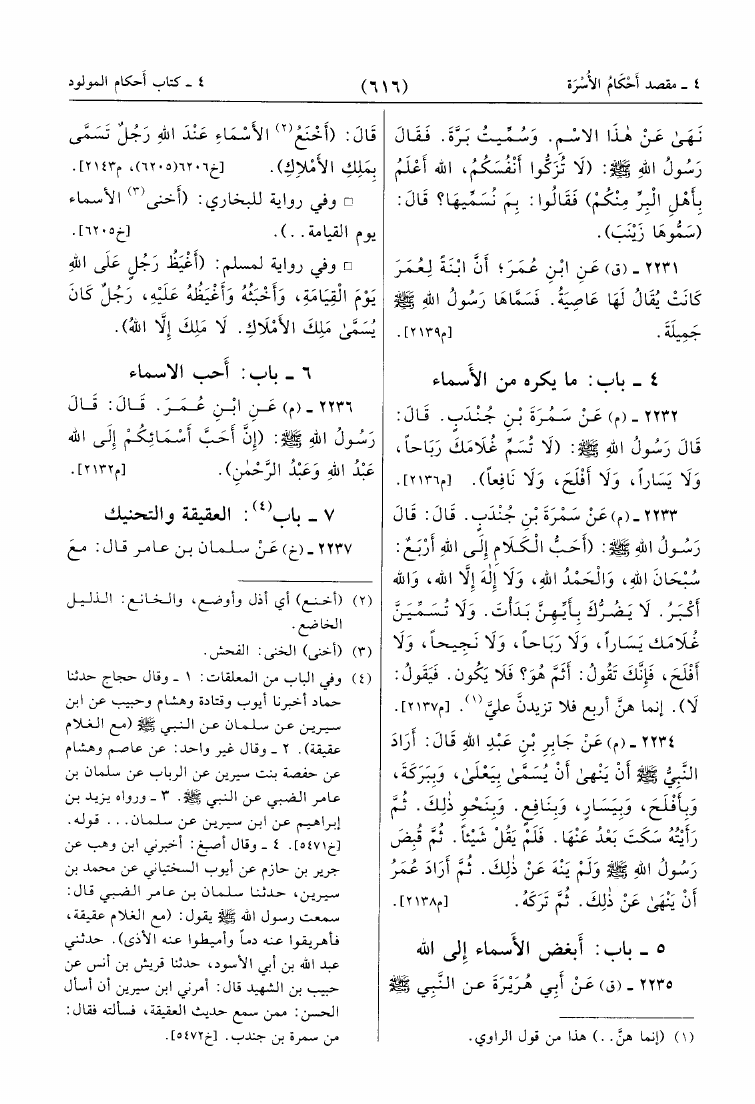 ٤ ـ مقصد أَحْكَامُ الأُسْرَة
(٦١٦)
٤ ـ كتاب أحكام المولود
نَهَىٰ عَنْ هٰذَا الاسْمِ. وَسُمِّيتُ بَرَّةَ. فَقَالَ
رَسُولُ اللهِ ﷺ: (لَا تُزَكُّوا أَنْفُسَكُمْ، الله أَعْلَمُ
بِأَهْلِ الْبِرِّ مِنْكُمْ) فَقَالُوا: بِمَ نُسَمِّيهَا؟ قَالَ:
(سَمُّوهَا زَيْنَبَ).
٢٢٣١ ـ (ق) عَنِ ابْنِ عُمَرَ؛ أَنَّ ابْنَةً لِعُمَرَ
كَانَتْ يُقَالُ لَهَا عَاصِيَةُ. فَسَمَّاهَا رَسُولُ اللهِ ﷺ
جَمِيلَةَ. [م٢١٣٩].
٤ ـ باب: ما يكره من الأسماء
٢٢٣٢ ـ (م) عَنْ سَمُرَةَ بْنِ جُنْدَبٍ. قَالَ:
قَالَ رَسُولُ اللهِ ﷺ: (لَا تُسَمِّ غُلَامَكَ رَبَاحاً،
وَلَا يَسَاراً، وَلَا أَفْلَحَ، وَلَا نَافِعاً). [م٢١٣٦].
٢٢٣٣ ـ (م) عَنْ سَمُرَةَ بْنِ جُنْدَبٍ. قَالَ: قَالَ
رَسُولُ اللهِ ﷺ: (أَحَبُّ الْكَلَامِ إِلَى اللهِ أَرْبَعٌ:
سُبْحَانَ اللهِ، وَالْحَمْدُ اللهِ، وَلَا إِلٰهَ إِلَّا اللهُ، وَالله
أَكْبَرُ. لَا يَضُرُّكَ بِأَيِّهِنَّ بَدَأْتَ. وَلَا تُسَمِّيَنَّ
غُلَامَكَ يَسَاراً، وَلَا رَبَاحاً، وَلَا نَجِيحاً، وَلَا
أَفْلَحَ، فَإِنَّكَ تَقُولُ: أَثَمَّ هُوَ؟ فَلَا يَكُونُ. فَيَقُولُ:
لَا). إنما هنَّ أربع فلا تزيدنَّ عليَّ(١). [م٢١٣٧].
٢٢٣٤ ـ (م) عَنْ جَابِرِ بْنِ عَبْدِ اللهِ قَالَ: أَرَادَ
النَّبِيُّ ﷺ أَنْ يَنْهَىٰ أَنْ يُسَمَّىٰ بِيَعْلَىٰ، وَبِبَرَكَةَ،
وَبِأَفْلَحَ، وَبِيَسَارٍ، وَبِنَافِعٍ. وَبِنَحْوِ ذٰلِكَ. ثُمَّ
رَأَيْتُهُ سَكَتَ بَعْدُ عَنْهَا. فَلَمْ يَقُلْ شَيْئاً. ثُمَّ قُبِضَ
رَسُولُ اللهِ ﷺ وَلَمْ يَنْهَ عَنْ ذٰلِكَ. ثُمَّ أَرَادَ عُمَرُ
أَنْ يَنْهَىٰ عَنْ ذٰلِكَ. ثُمَّ تَرَكَهُ. [م٢١٣٨].
٥ ـ باب: أبغض الأسماء إلى الله
٢٢٣٥ ـ (ق) عَنْ أَبِي هُرَيْرَةَ عن النَّبِي ﷺ
(١) (إنما هنَّ..) هذا من قول الراوي.
قَالَ: (أَخْنَعُ(٢) الأَسْمَاءِ عِنْدَ اللهِ رَجُلٌ تَسَمَّى
بِمَلِكِ الأَمْلَاكِ). [خ٦٢٠٦(٦٢٠٥)، م٢١٤٣].
□ وفي رواية للبخاري: (أخنى(٣) الأسماء
يوم القيامة..). [خ٦٢٠٥].
□ وفي رواية لمسلم: (أَغْيَظُ رَجُلٍ عَلَى اللهِ
يَوْمَ الْقِيَامَةِ، وَأَخْبَثُهُ وَأَغْيَظُهُ عَلَيْهِ، رَجُلٌ كَانَ
يُسَمَّىٰ مَلِكَ الأَمْلَاكِ. لَا مَلِكَ إِلَّا اللهُ).
٦ ـ باب: أحب الاسماء
٢٢٣٦ ـ (م) عَنِ ابْنِ عُمَرَ. قَالَ: قَالَ
رَسُولُ اللهِ ﷺ: (إِنَّ أَحَبَّ أَسْمَائِكُمْ إِلَى اللهِ
عَبْدُ اللهِ وَعَبْدُ الرَّحْمٰنِ). [م٢١٣٢].
٧ ـ باب(٤): العقيقة والتحنيك
٢٢٣٧ ـ (خ) عَنْ سلمان بن عامر قال: مَعَ
(٢) (أخنع) أي أذل وأوضع، والخانع: الذليل
الخاضع.
(٣) (أخنى) الخنى: الفحش.
(٤) وفي الباب من المعلقات: ١ ـ وقال حجاج حدثنا
حماد أخبرنا أيوب وقتادة وهشام وحبيب عن ابن
سيرين عن سلمان عن النبي ﷺ (مع الغلام
عقيقة). ٢ ـ وقال غير واحد: عن عاصم وهشام
عن حفصة بنت سيرين عن الرباب عن سلمان بن
عامر الضبي عن النبي ﷺ. ٣ ـ ورواه يزيد بن
إبراهيم عن ابن سيرين عن سلمان... قوله.
[خ٥٤٧١]. ٤ ـ وقال أصبغ: أخبرني ابن وهب عن
جرير بن حازم عن أيوب السختياني عن محمد بن
سيرين، حدثنا سلمان بن عامر الضبي قال:
سمعت رسول الله ﷺ يقول: (مع الغلام عقيقة،
فأهريقوا عنه دماً وأميطوا عنه الأذى). حدثني
عبد الله بن أبي الأسود، حدثنا قريش بن أنس عن
حبيب بن الشهيد قال: أمرني ابن سيرين أن أسأل
الحسن: ممن سمع حديث العقيقة، فسألته فقال:
من سمرة بن جندب. [خ٥٤٧٢].